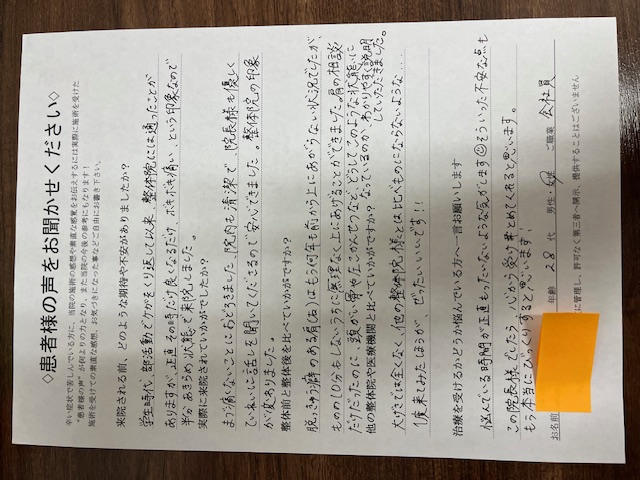 ◇患者様の声をお聞かせください◇
辛い症状で苦しんでいる方に、当院の施術の感想や素直な感覚をお伝えするには実際に施術を受けた
“患者様の声”が何よりの力となり、また当院の今後の参考にもなります！
施術を受けての素直な感想、お気づきになった事などご自由にお書き下さい。
来院される前、どのような期待や不安がありましたか？
学生時代、部活動でケガをくり返して以来、整体院には通ったことが
ありますが、正直その時だけ良くなるだけ、ボキボキ痛い、という印象なので
半分あきらめ状態で来院しました。
実際に来院されていかがでしたか？
まず痛くないことにおどろきました。院内も清潔で、院長様も優しく
ていねいに話しを聞いてくださるので安心できました。整体院の印象
が変わりました。
整体前と整体後を比べていかがですか？
脱きゅう癖のある肩(右)はもう何年前から上にあがらない状況でしたが、
ものの10分おしないうちに無理なく上にあげることができました。肩の相談
だけだったのに、頭がい骨や左こつばんなど、どうしてこのような状態に
なっているのか、わかりやすく説明
していただきました。
他の整体院や医療機関と比べていかがですか？
大げさでは全くなく、他の整体院様とは比べものにならないような…
1度来てみたほうが、ぜったいいいです!!
治療を受けるかどうか悩んでいる方へ一言お願いします
悩んでいる時間が正直もったいないような気がします☺そういった不安な点も
この院長様でしたら、心から受け止めてくれると思います。
もう本当にびっくりすると思います！
お名前
年齢 28 代 男性・女性 ご職業 会社員
に管理し、許可なく第三者へ開示、提供することはございません